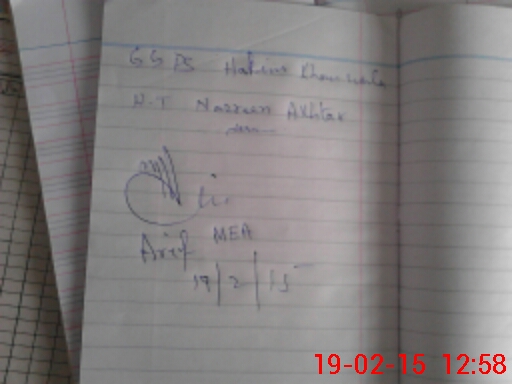 GGPS Hakim Khanwala
H.T Nasreen Akhtar
Arif MEA
19/2/15
19-02-15 12:58